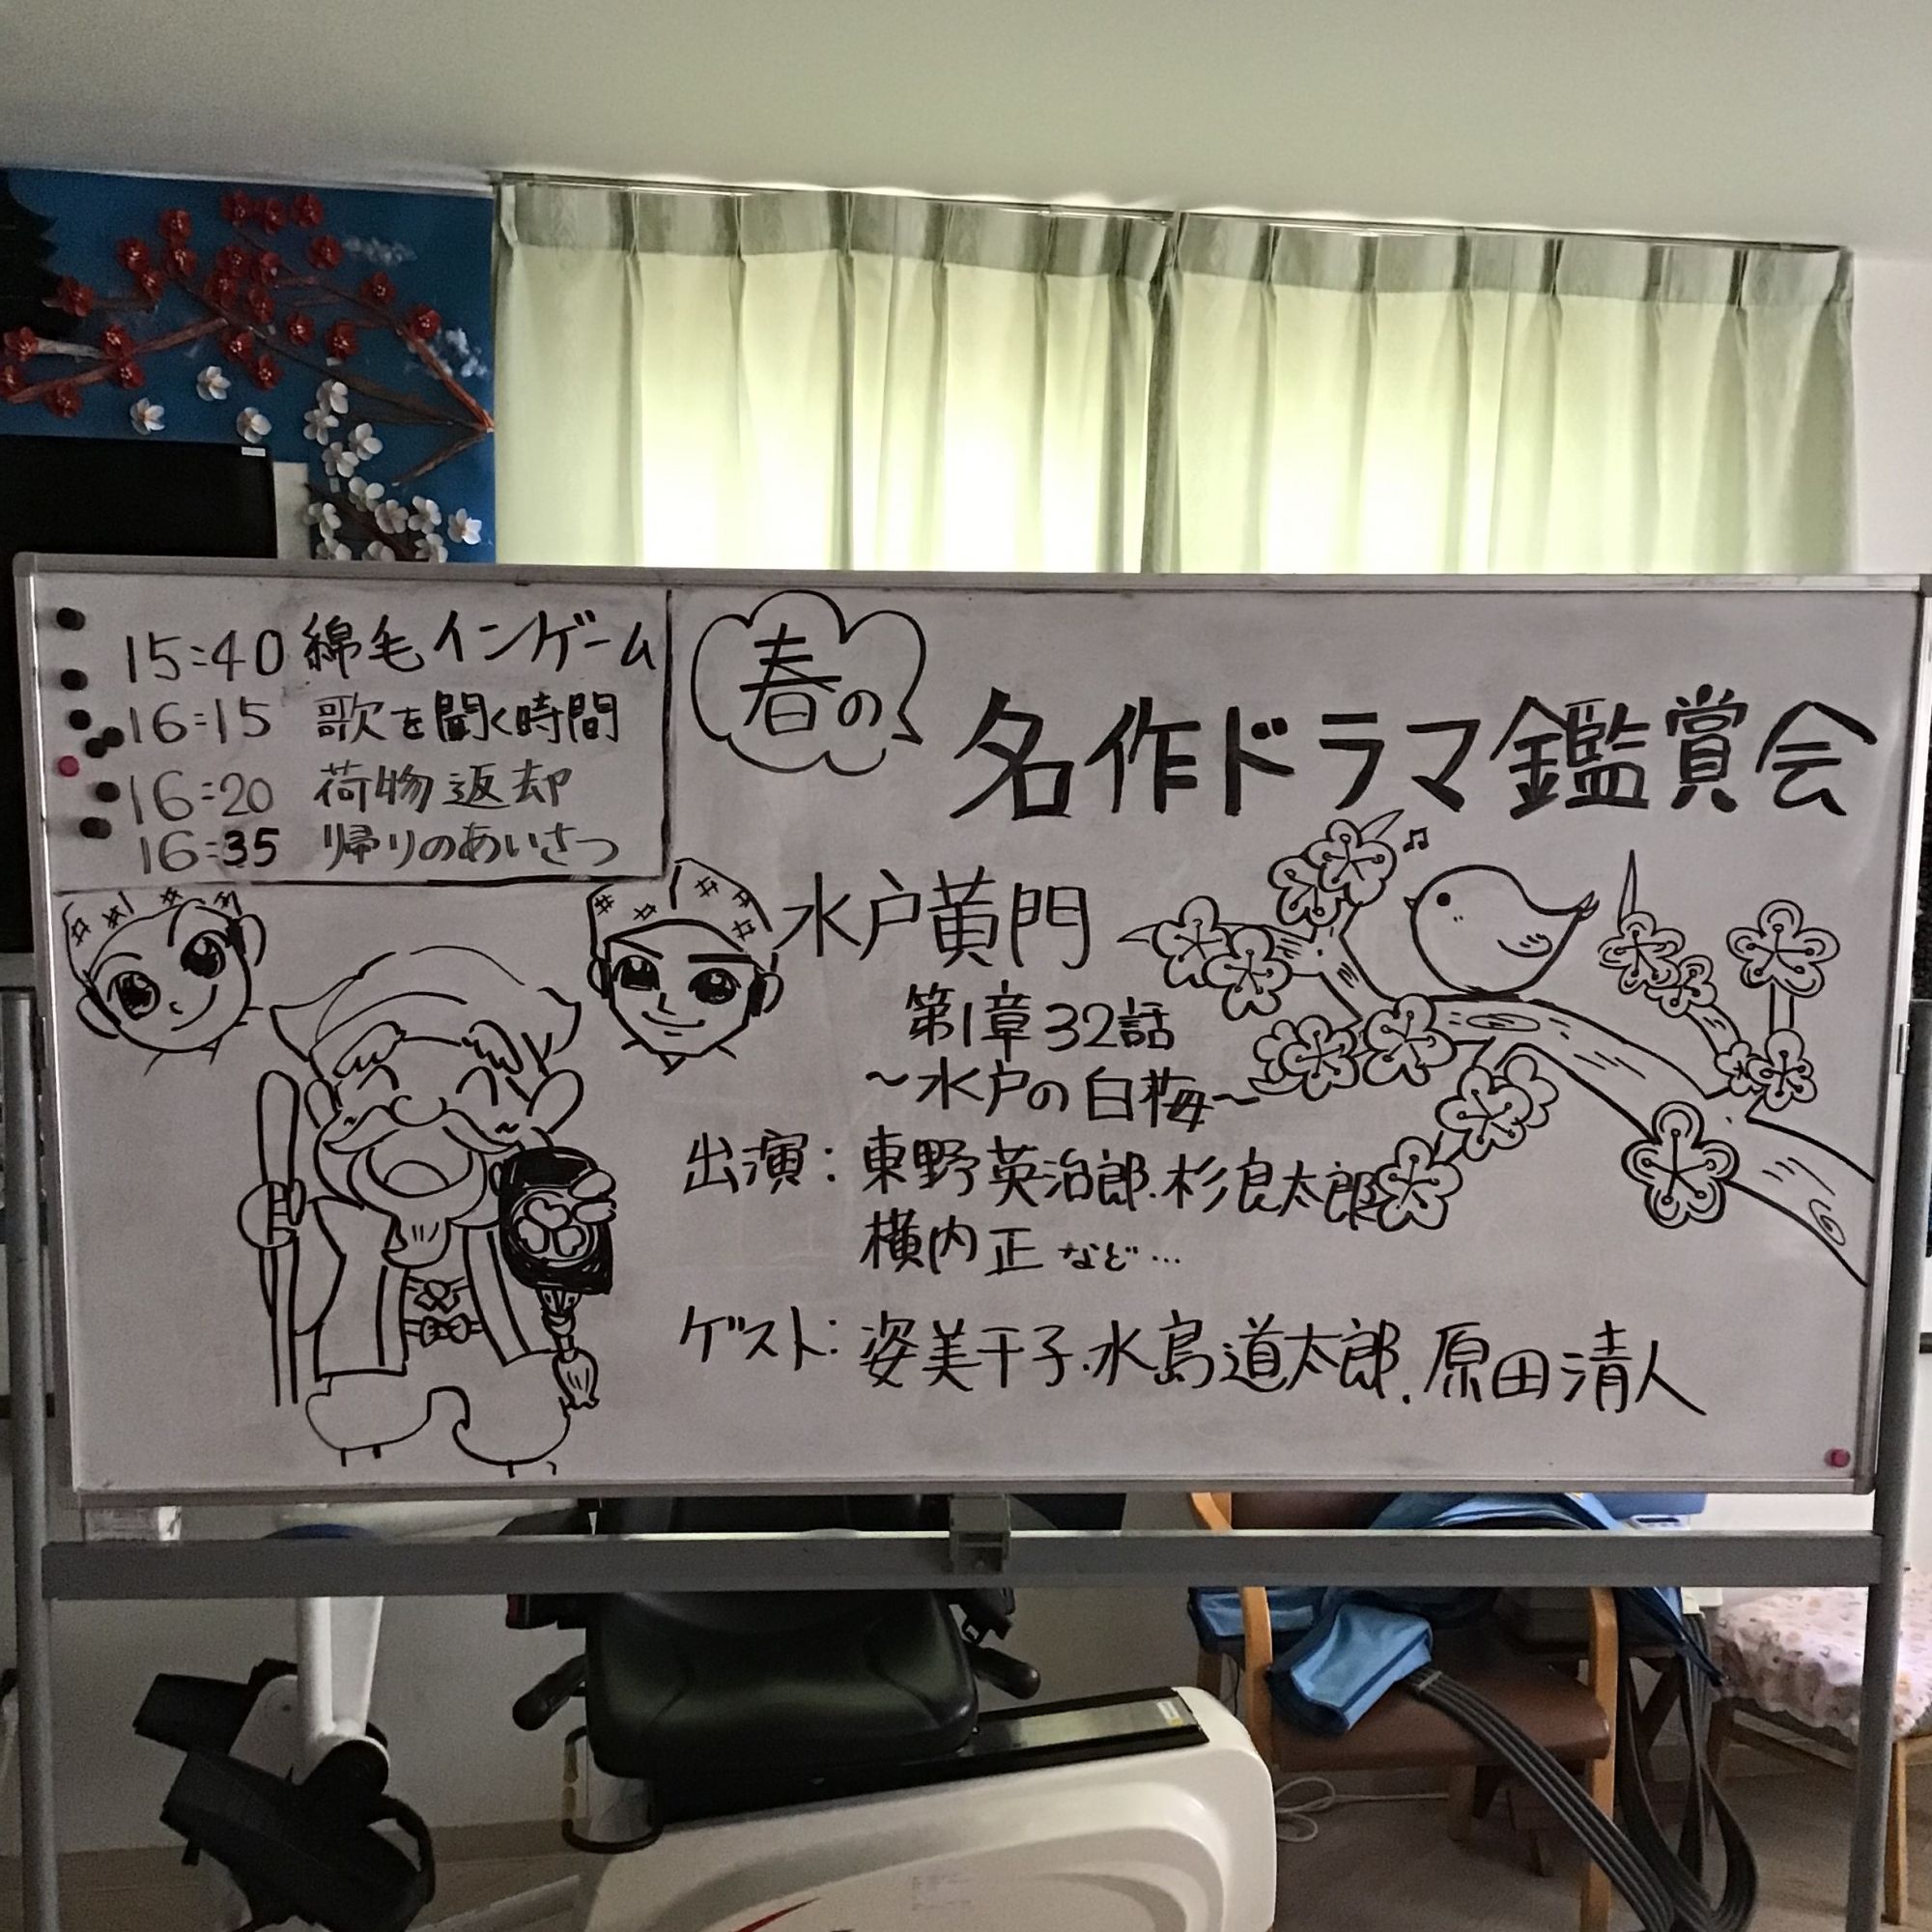 15:40 綿毛インゲーム
16:15 歌を聞く時間
16:20 荷物返却
16:35 帰りのあいさつ
春の
名作ドラマ鑑賞会
水戸黄門
第1章32話
〜水戸の白梅〜
出演:東野英治郎.杉良太郎
横内正 など…
ゲスト:姿美千子.水島道太郎.原田清人